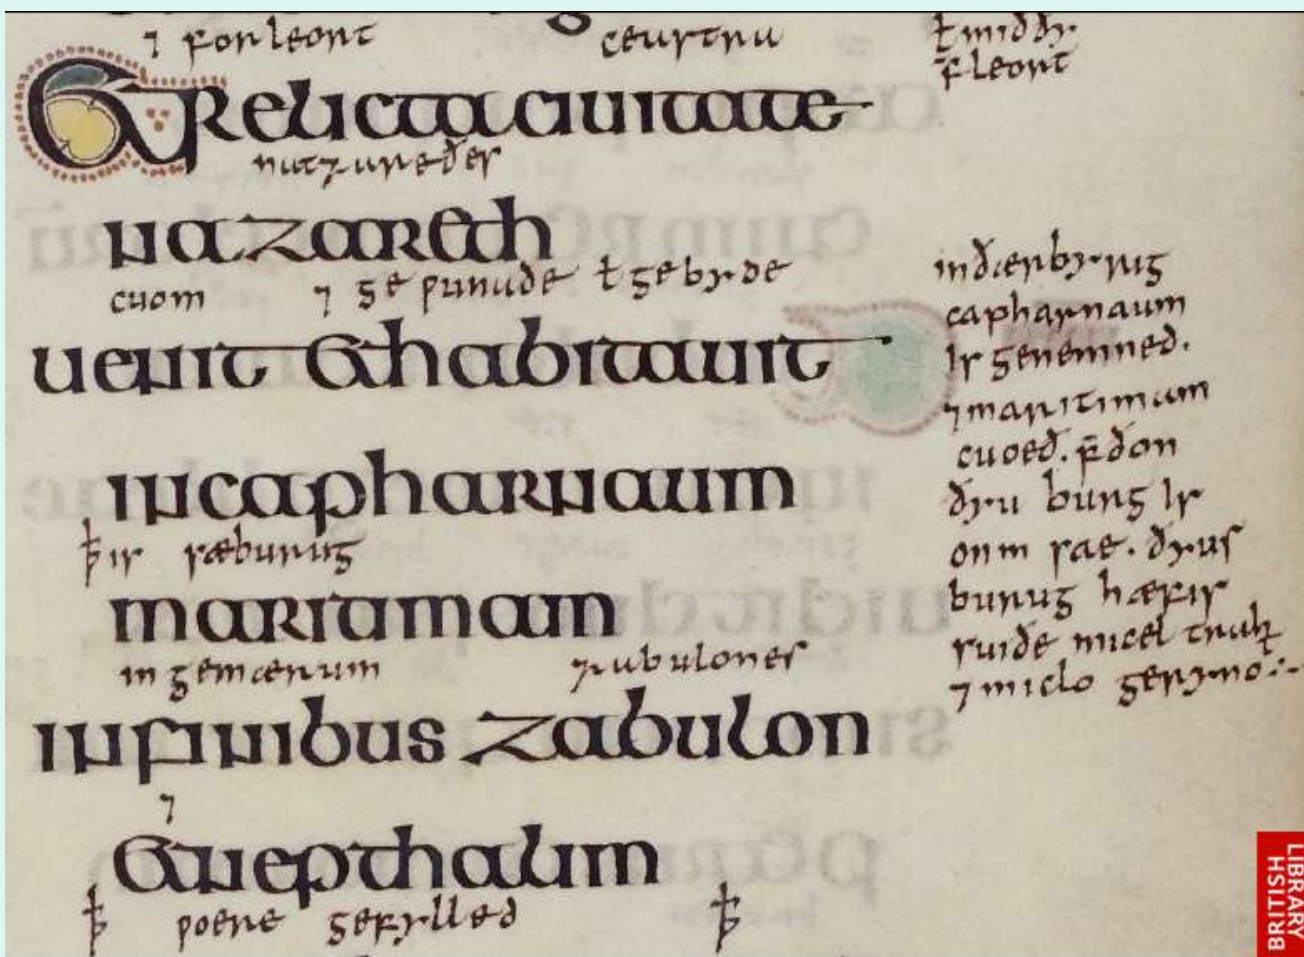 ⁊ forleort ceastra ł miððy
f'leort
Et relicta ciuitate
natzareðes
nazareth
cuom ⁊ geƿunade ł gebyde
uenit et habitauit
in capharnaum
ꝥ is sæburug
maritimam
in gemærum zabulones
in finibus zabulon
⁊
et nepthalim
ꝥ ƿoere gefylled ꝥ
in ðær byrug
capharnaum
is genemned.
⁊ maritimam
cuoeð. f'ðon
ðyu burug is
onm sae. ðyus
burug hæfis
suiðe micel
⁊ miclo geryno:-
BRITISH
LIBRARY